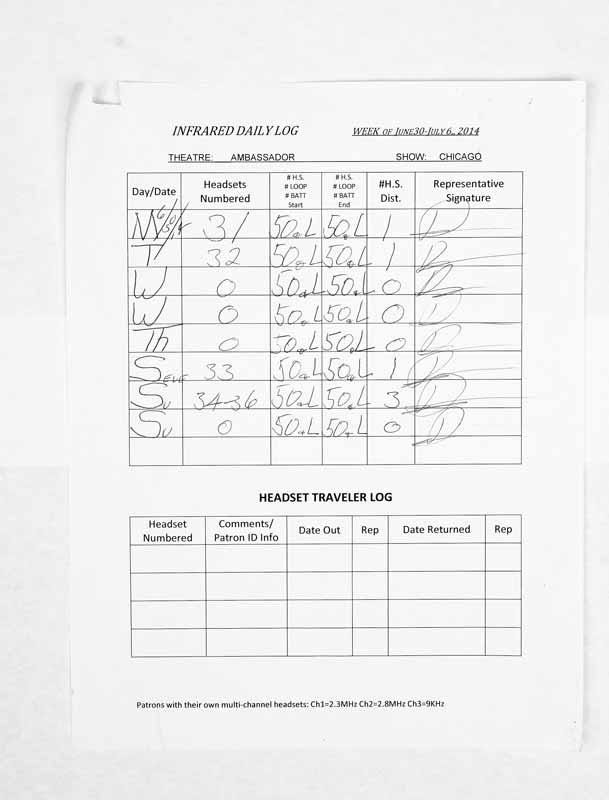 INFRARED DAILY LOG WEEK OF JUNE30-JULY 6, 2014
THEATRE: AMBASSADOR SHOW: CHICAGO
Day/Date Headsets Numbered # H.S. # LOOP # BATT Start # H.S. # LOOP # BATT End #H.S. Dist. Representative Signature
M 6/30/14 31 50 L 50 L 1
T 32 50 L 50 L 1
W 0 50 L 50 L 0
W 0 50 L 50 L 0
Th 0 50 L 50 L 0
S EVE 33 50 L 50 L 1
Su 34-36 50 L 50 L 3
Su 0 50 L 50 L 0
HEADSET TRAVELER LOG
Headset Numbered Comments/ Patron ID Info Date Out Rep Date Returned Rep
Patrons with their own multi-channel headsets: Ch1=2.3MHz Ch2=2.8MHz Ch3=9KHz